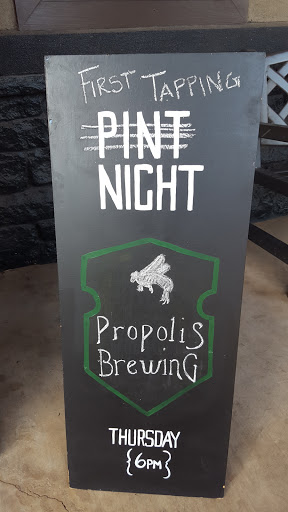 FIRST TAPPING
PINT
NIGHT
PROPOLIS
BREWING
THURSDAY
{6PM}